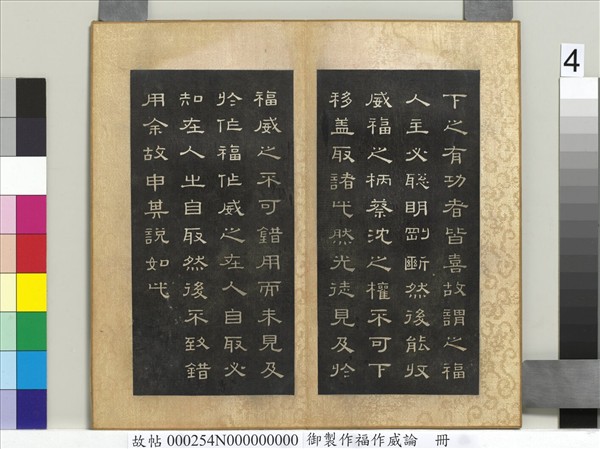 下之有功者皆喜故謂之福
人主必聰明剛斷然後能收
威福之柄蔡沈之權不可下
移盖取諸此然光徒見及於
福威之不可錯用而未見及
於作福作威之在人自取必
知在人之自取然後不致錯
用余故申其說如此
4
故帖 000254N000000000 御製作福作威論 冊